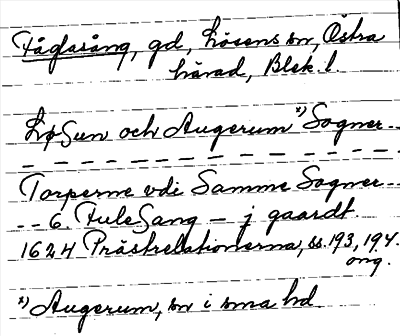 Fågelsång, gd, Lösens sn, Östra
härad, Blek. l.
LøSun och Augerum x) Sogner--
- - - - - - - - - - - - - - -
Torperne vdi Samme Sogner--
-- 6 FuleSang - j gaardt
1624 Prästrelationerna, ss. 193, 194.
orig.
x) Augerum, sn i sma hd